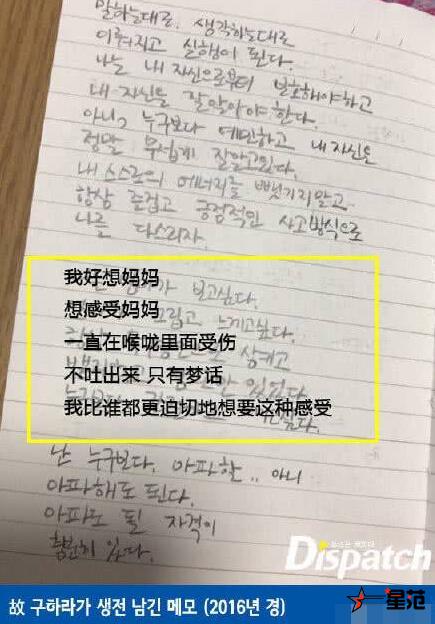 말하는대로. 생각하는대로
이뤄지고 실행이 된다.
나는 내 자신으로부터 보호해야하고
내 자신을 잘알아야 한다.
아니, 누구보다 예민하고 내 자신을
정말 무섭게 잘알고있다.
내 스스로의 에너지를 뺏기지말고
항상 즐겁고 긍정적인 사고방식으로
나를 다스리자.
보고싶다.
我好想妈妈
느끼고싶다.
想感受妈妈
一直在喉咙里面受伤
不吐出来 只有梦话
我比谁都更迫切地想要这种感受
난 누구보다. 아파할.. 아니
아파해도 된다.
아파도 될 자격이
충분히 있다.
Dispatch
故 구하라가 생전 남긴 메모 (2016년 경)
一星范